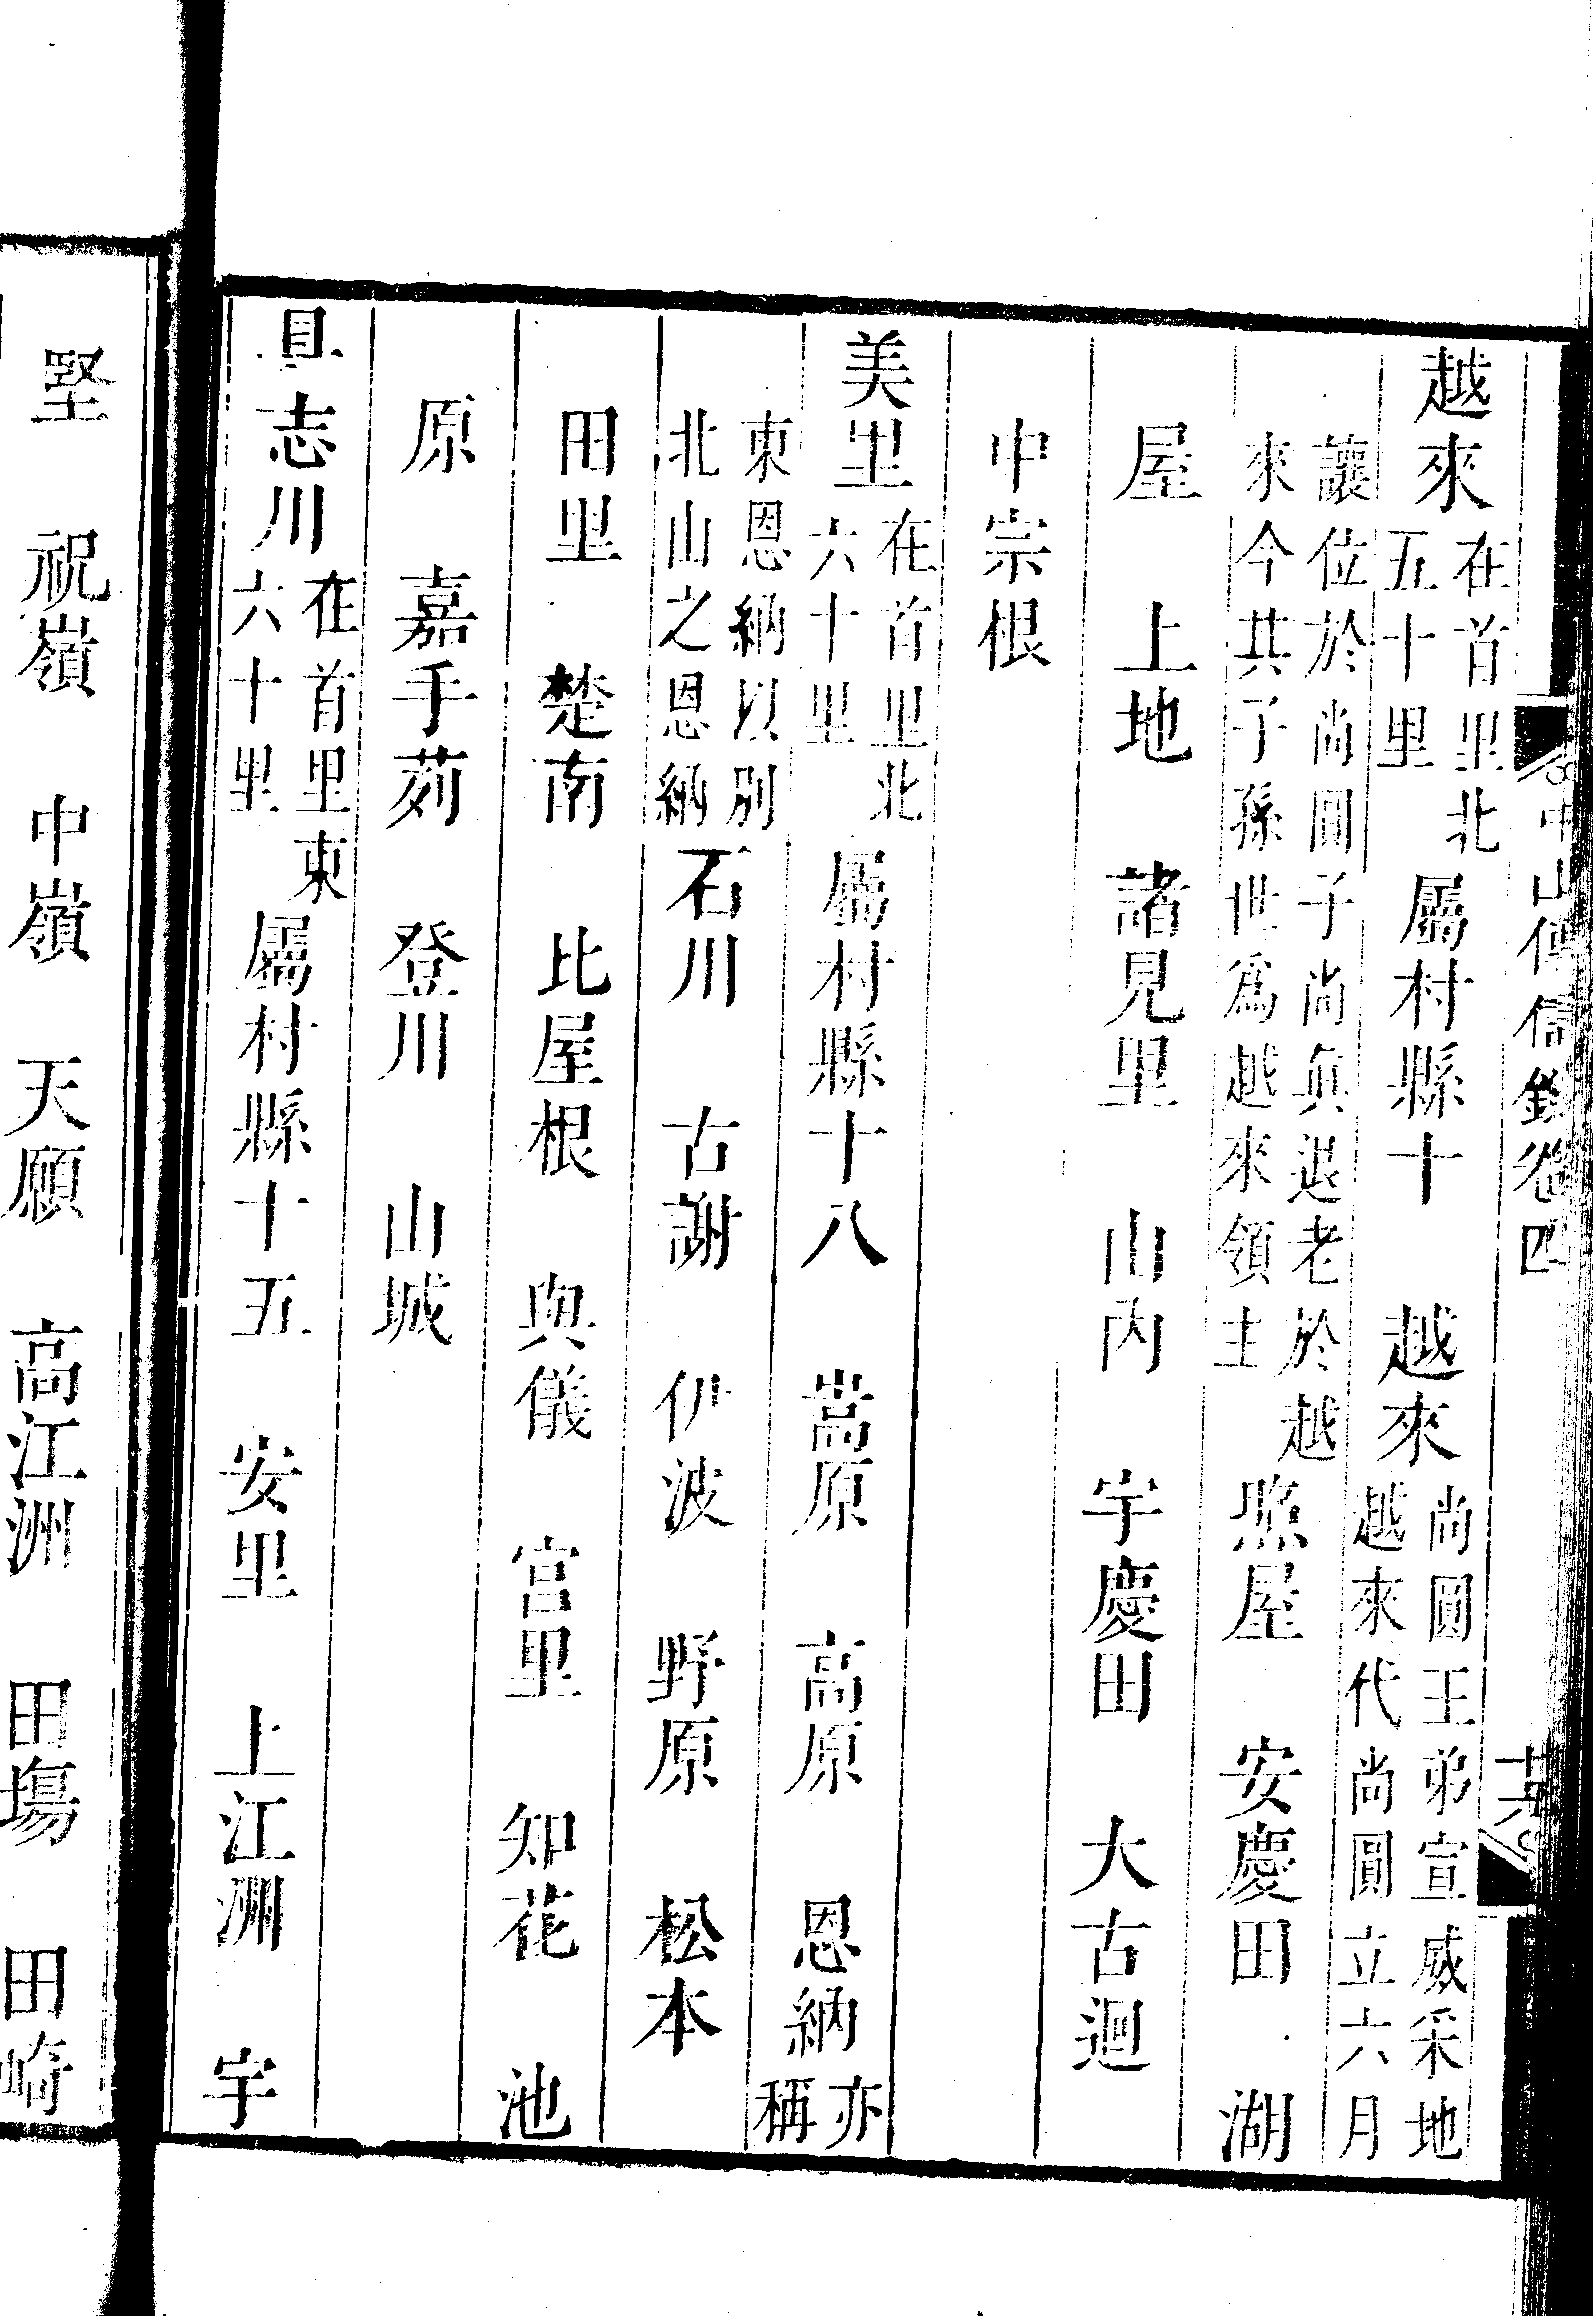 中山傳信錄卷四
越來 在首里北五十里 屬村縣十 越來 尚圓王弟宣威采地越來代尚圓立六月
讓位於尚圓子尚眞退老於越來今其子孫世爲越來領主 照屋 安慶田 湖
屋 上地 諸見里 山內 宇慶田 大古迴
中宗根
美里 在首里北六十里 屬村縣十八 嵩原 高原 恩納 亦稱
東恩納以別北山之恩納 石川 古謝 伊波 野原 松本
田里 楚南 比屋根 與儀 宮里 知花 池
原 嘉手苅 登川 山城
具志川 在首里東六十里 屬村縣十五 安里 上江洲 宇
堅 祝嶺 中嶺 天願 高江洲 田塲 田崎